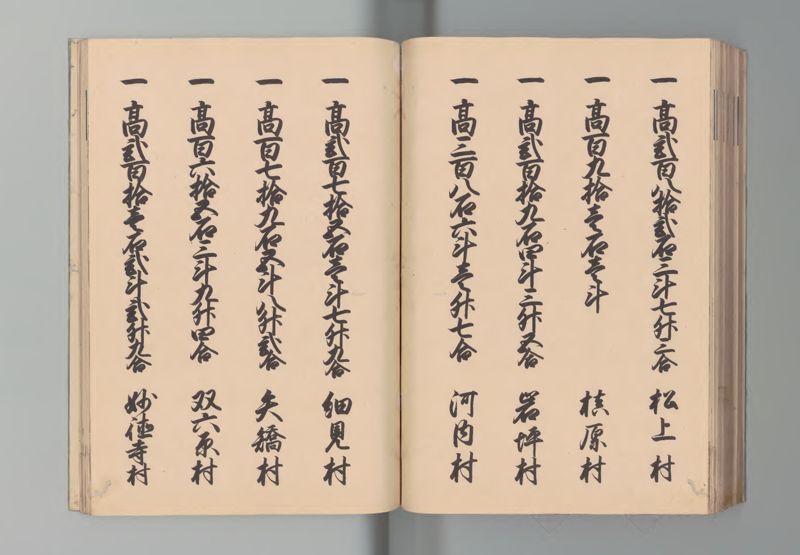 一 高弐百八拾弐石三斗七升三合 松上村
一 高百九拾壱石壱斗 槙原村
一 高弐百拾九石四斗三升五合 岩坪村
一 高三百八石六斗壱升七合 河内村
一 高弐百七拾五石壱斗七升九合 細見村
一 高百七拾九石五斗八升弐合 矢矯村
一 高百六拾五石三斗九升四合 双六原村
一 高弐百拾壱石弐斗弐升九合 妙徳寺村